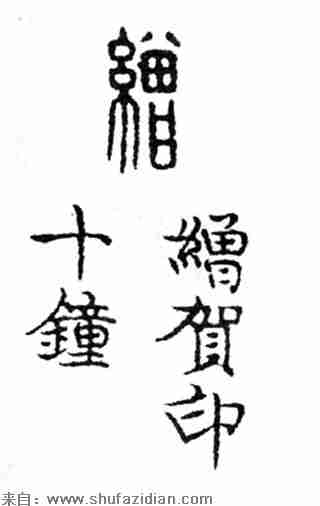 繒
繒賀印
十鐘
来自：www.shufazidian.com